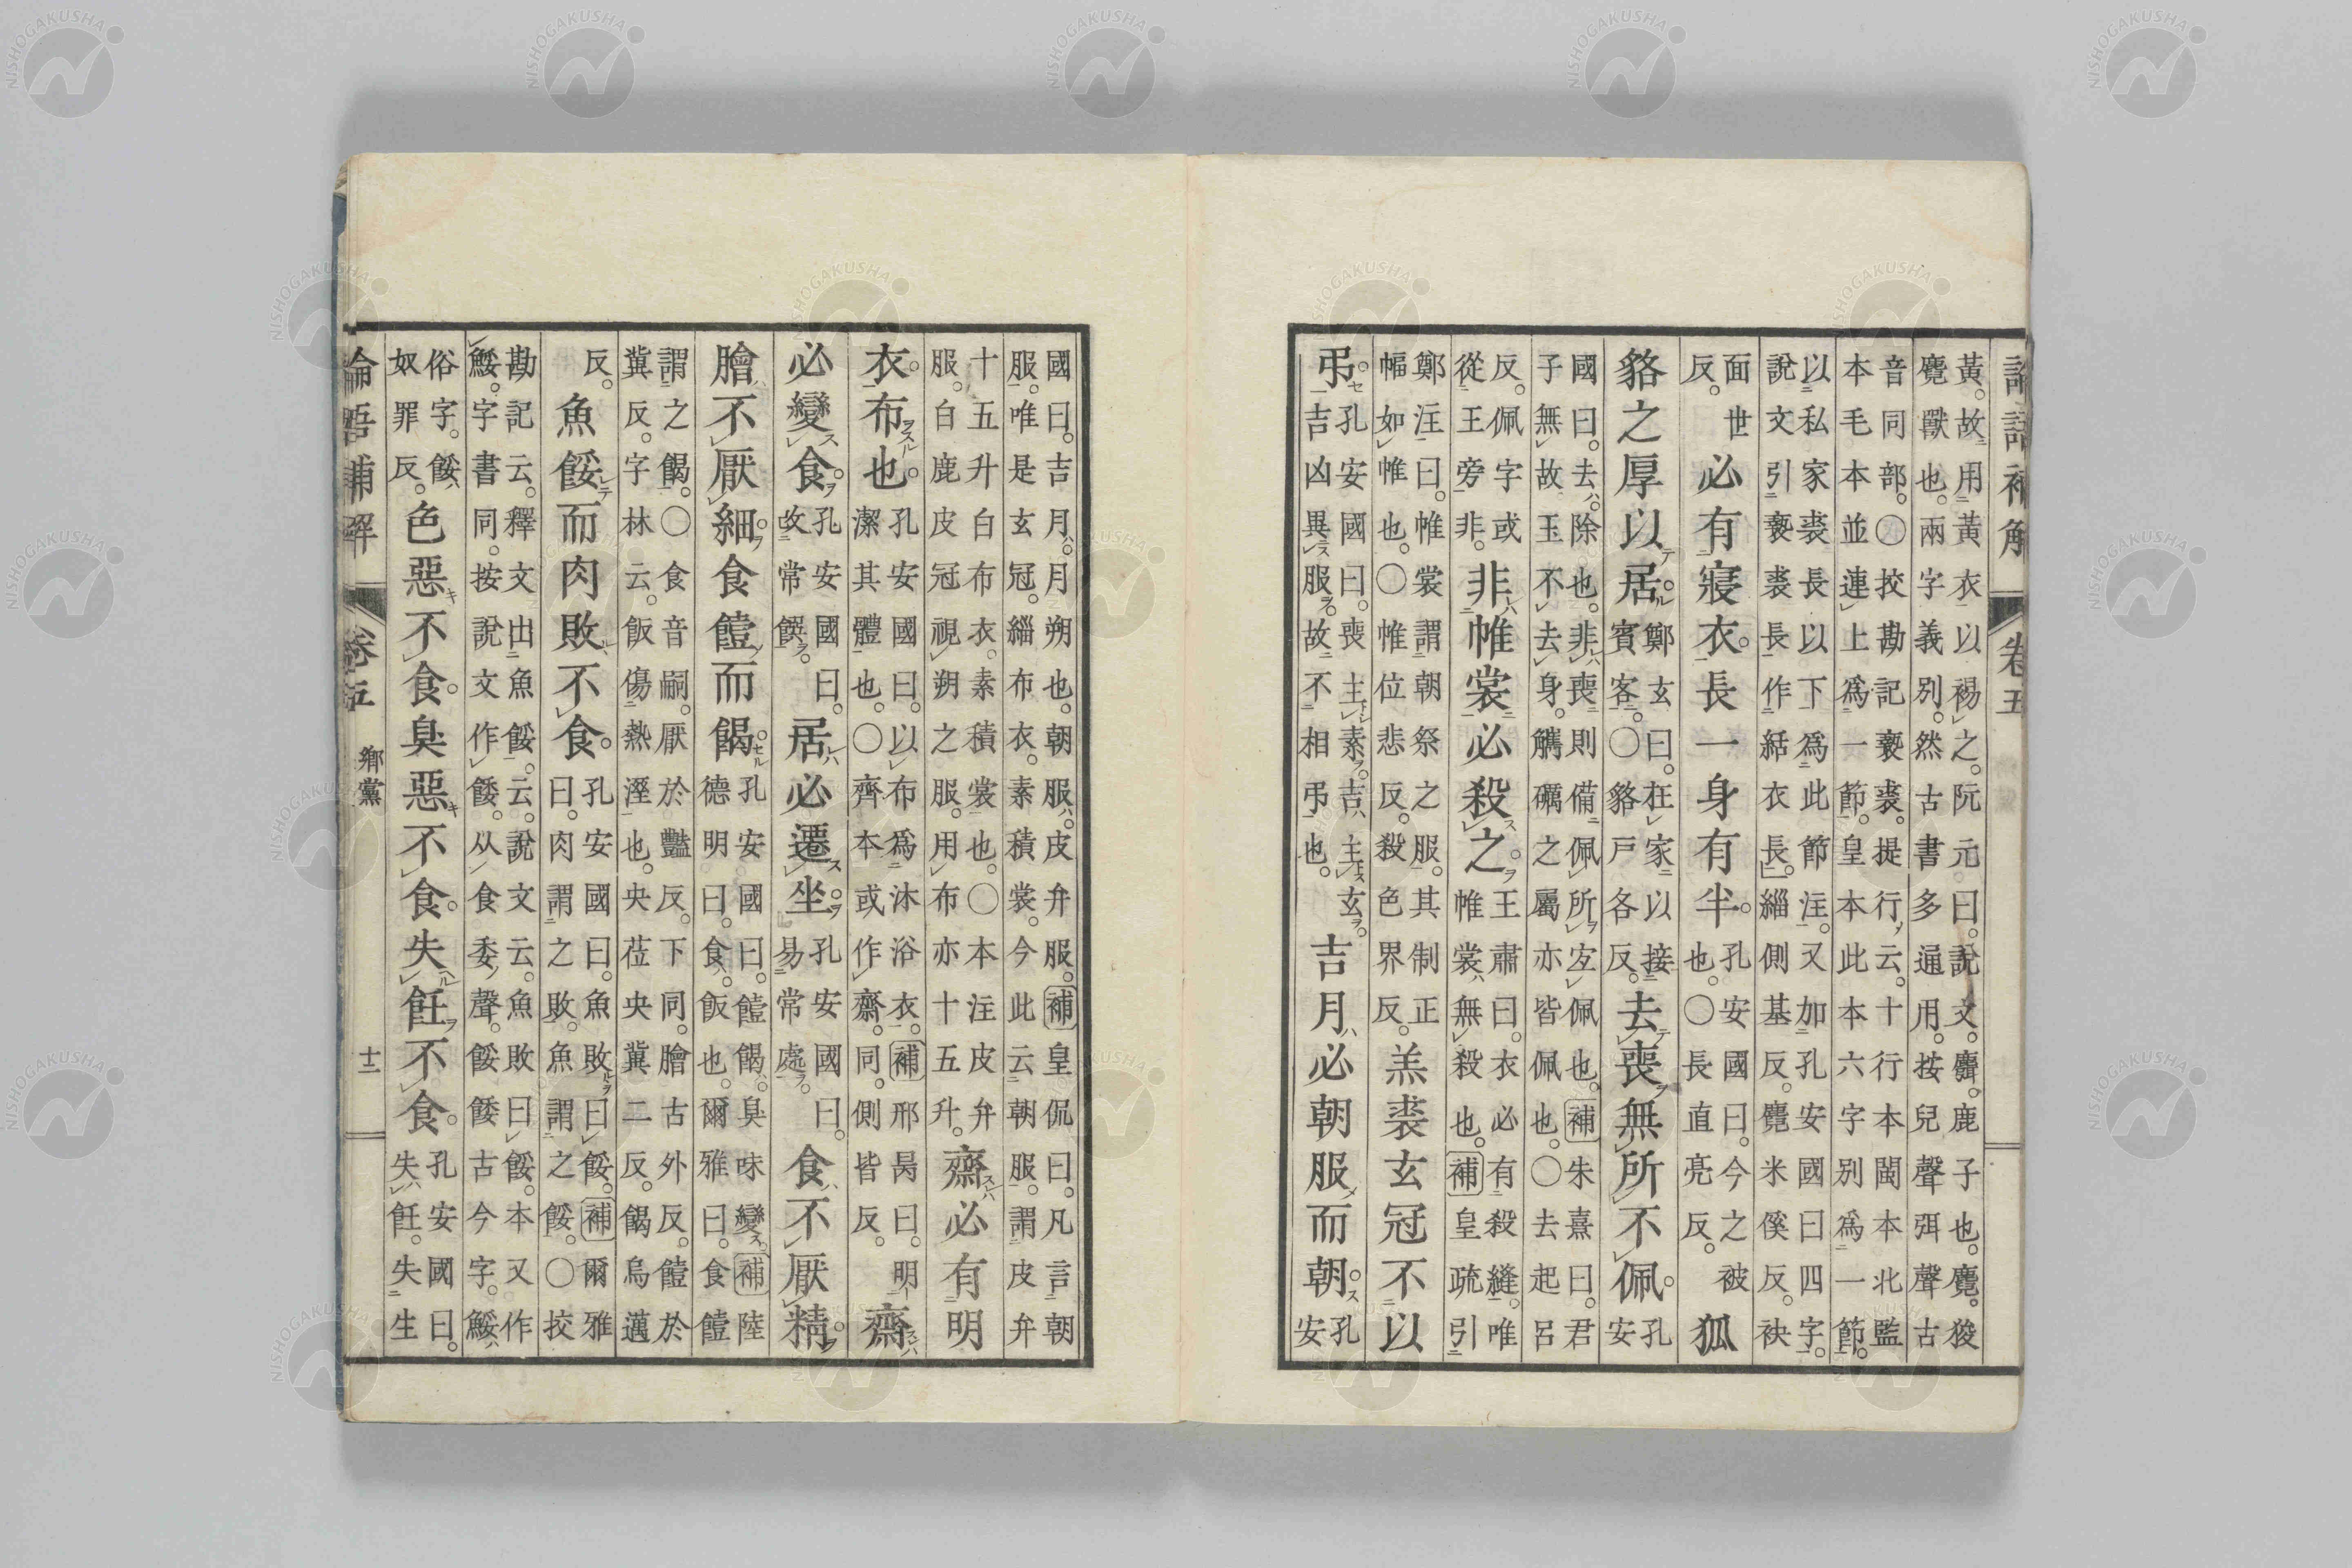 論語補解 卷五
黃。故用黃衣以裼之。阮元曰。說文。麛。鹿子也。麑。狻
麑獸也。兩字義別。然古書多通用。按兒聲弭聲古
音同部。〇挍勘記褻裘。提行云。十行本閩本北監
本毛本並連上爲一節。皇本此本六字別爲一節。
以私家裘長以下爲此節注。又加孔安國曰四字。
說文引褻裘長作絬衣長。緇側基反。麑米傒反。袂
面世反。必有寢衣。長一身有半。孔安國曰。今之被也。〇長直亮反。狐
貉之厚以居。鄭玄曰。在家以接賓客。〇貉戶各反。去喪無所不佩。孔安
國曰。去。除也。非喪則備佩所宜佩也。補朱熹曰。君
子無故玉不去身。觿礪之屬亦皆佩也。〇去起呂
反。佩字或從王旁非。非帷裳必殺之。王肅曰。衣必有殺縫。唯帷裳無殺也。補皇疏引
鄭注曰。帷裳謂朝祭之服。其制正幅如帷也。〇帷位悲反。殺色界反。羔裘玄冠不以
弔。孔安國曰。喪主素。吉主玄。吉凶異服。故不相弔也。吉月必朝服而朝。孔安
國曰。吉月。月朔也。朝服。皮弁服。補皇侃曰。凡言朝
服。唯是玄冠。緇布衣。素積裳。今此云朝服。謂皮弁
十五升白布衣。素積裳也。〇本注皮弁服。白鹿皮冠視朔之服。用布亦十五升。齋必有明
衣。布也。孔安國曰。以布爲沐浴衣。補邢昺曰。明潔其體也。〇齊本或作齋。同。側皆反。齋
必變食。孔安國曰。改常饌。居必遷坐。孔安國曰。易常處。食不厭精。
膾不厭細。食饐而餲。孔安國曰。饐餲。臭味變。補陸德明曰。食。飯也。爾雅曰。食饐
謂之餲。〇食音嗣。厭於豔反。下同。膾古外反。饐於
冀反。字林云。飯傷熱溼也。央莅央冀二反。餲烏邁
反。魚餒而肉敗不食。孔安國曰。魚敗曰餒。補爾雅曰。肉謂之敗。魚謂之餒。〇挍
勘記云。釋文出魚餒。云。說文云。魚敗曰餒。本又作
鮾。字書同。按說文作餧。从食委聲。餒餧古今字。鮾
俗字。餒奴罪反。色惡不食。臭惡不食。失飪不食。孔安國曰。失飪。失生
論語補解 卷五 鄉黨 十二